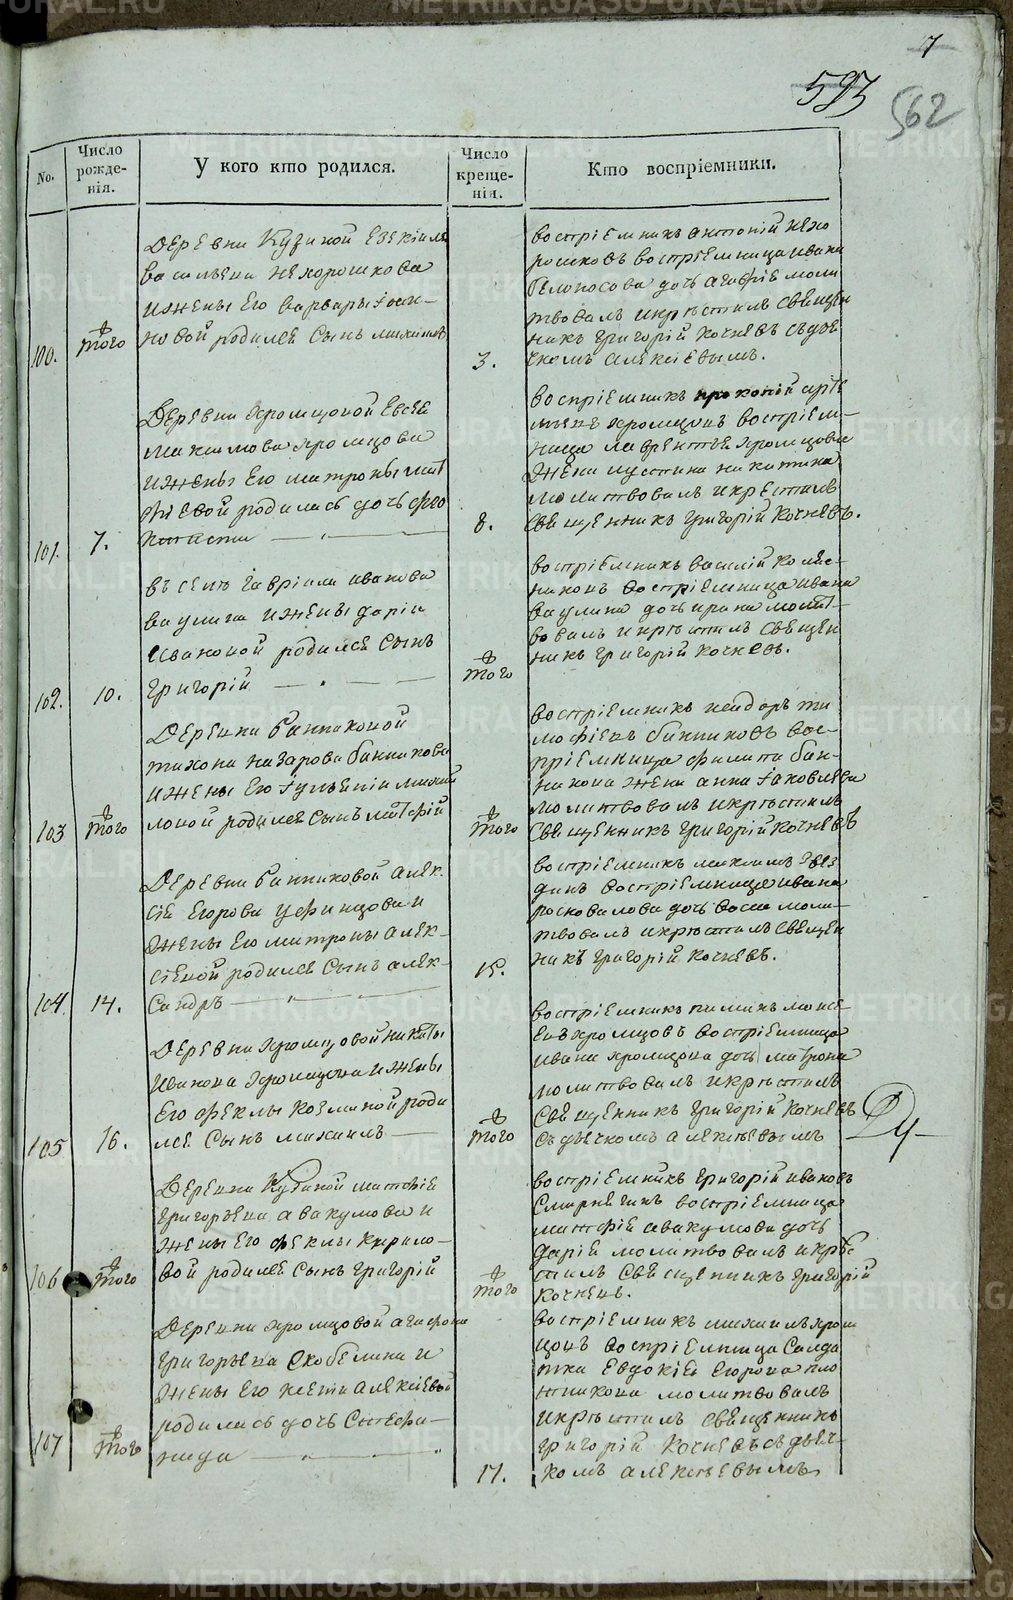 7
593
562
No.
Число рожде-
нія.
У кого кто родился.
Число креще-
нія.
Кто воспріемники.
100.
того
Деревни Кузиной Езекіиля
Васильева Нехорошкова
и жены его Варвары Іоан-
новой родился сынъ Михаилъ
3.
воспріемникъ Антоній Нехо
рошковъ воспріемница Ивана
Белоносова дочь Агафіе моли
твовалъ и крѣстилъ Священ
никъ Григорій Кочневъ съ дья
чкомъ Алексіевымъ.
101.
7.
Деревни Хромцовой Евсей
Максимова Хромцова
и жены его Матроны Мат
фіевой родилась дочь
8.
воспріемникъ прокопій
Хромцовъ воспріем-
ница Лаврентья Хромцова
жена Устина Никитина
молитвовалъ и крестилъ
Священникъ Григорій Кочневъ.
102.
10.
въ селѣ Гавріила Иванова
Ваулина и жены Даріи
Ивановой родился сынъ
Григорій
того
воспріемникъ Василій Колес-
никовъ воспріемница Ивана
Ваулина дочь Ирина молит-
вовалъ и крѣстилъ Священ
никъ Григорій Кочневъ.
103
того
Деревни Банниковой
Тихона Назарова Банникова
и жены его Іуліаніи Михай
ловой родился сынъ Матфій
того
воспріемникъ Исидоръ Ти
мофіевъ Банниковъ вос-
пріемница Филипа Бан-
никова жена Анна Іаковлева
молитвовалъ и крѣстилъ
Священникъ Григорій Кочневъ
104.
14.
Деревни Банниковой Алек
сіе Егорова Уфинцова и
жены его Матроны Алек-
сіевой родился сынъ Алек-
сандръ
15.
воспріемникъ Максимъ
воспріемница Ивана
Росковалова дочь моли-
твовалъ и крѣстилъ Священ
никъ Григорій Кочневъ.
105
16.
Деревни Хромцовой Никиты
Иванова Хромцова и жены
его Феклы Козминой роди
лся сынъ Михаилъ
того
воспріемникъ Пиминъ Моисе
евъ Хромцовъ воспріемница
Ивана Хромцова дочь Матрона
молитвовалъ и крѣстилъ
Священникъ Григорій Кочневъ
съ дьячкомъ Алексѣевымъ
106
того
Деревни Кузиной Матфіе
Григорьева Авакумова и
жены его Феклы Кирило-
вой родился сынъ Григорій
того
воспріемникъ Григорій Ивановъ
Смирнягинъ воспріемница
Матфіе Авакумова дочь
Дарія молитвовалъ и крѣ
стилъ Священникъ Григорій
Кочневъ.
107
того
Деревни Хромцовой Агафона
Григорьева Скобелина и
жены его Ксеніи Алексіевой
родилась дочь Стефа-
нида
17.
воспріемникъ Михаилъ Хром
цовъ воспріемница Салда
тка Евдокія Егорова Пло
тникова молитвовалъ
и крѣстилъ Священникъ
Григорій Кочневъ съ дьяч-
комъ Алексѣевымъ